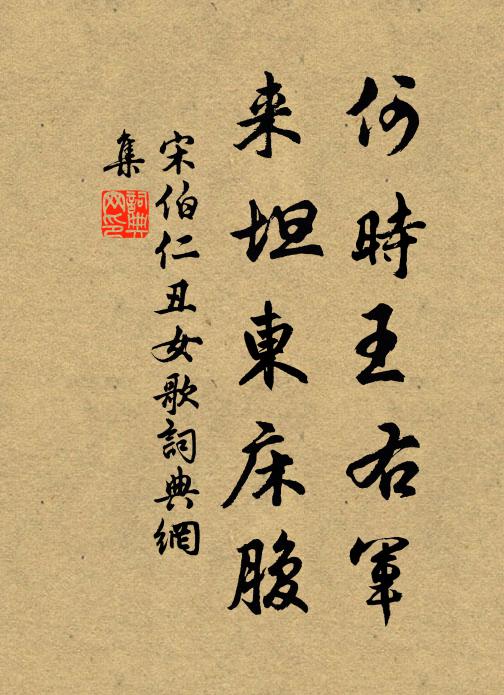 何時王右軍
来坦東床腹
宋伯仁丑女歌詞典網
集
詞典网印